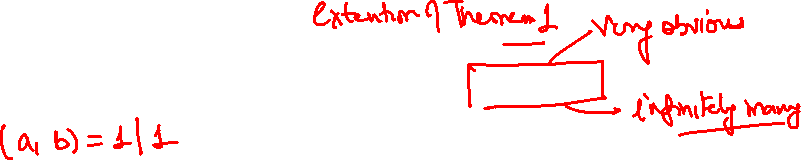 Extention of Theorem 1
Very obvious
infinitely many
(a, b) = 1 | 1